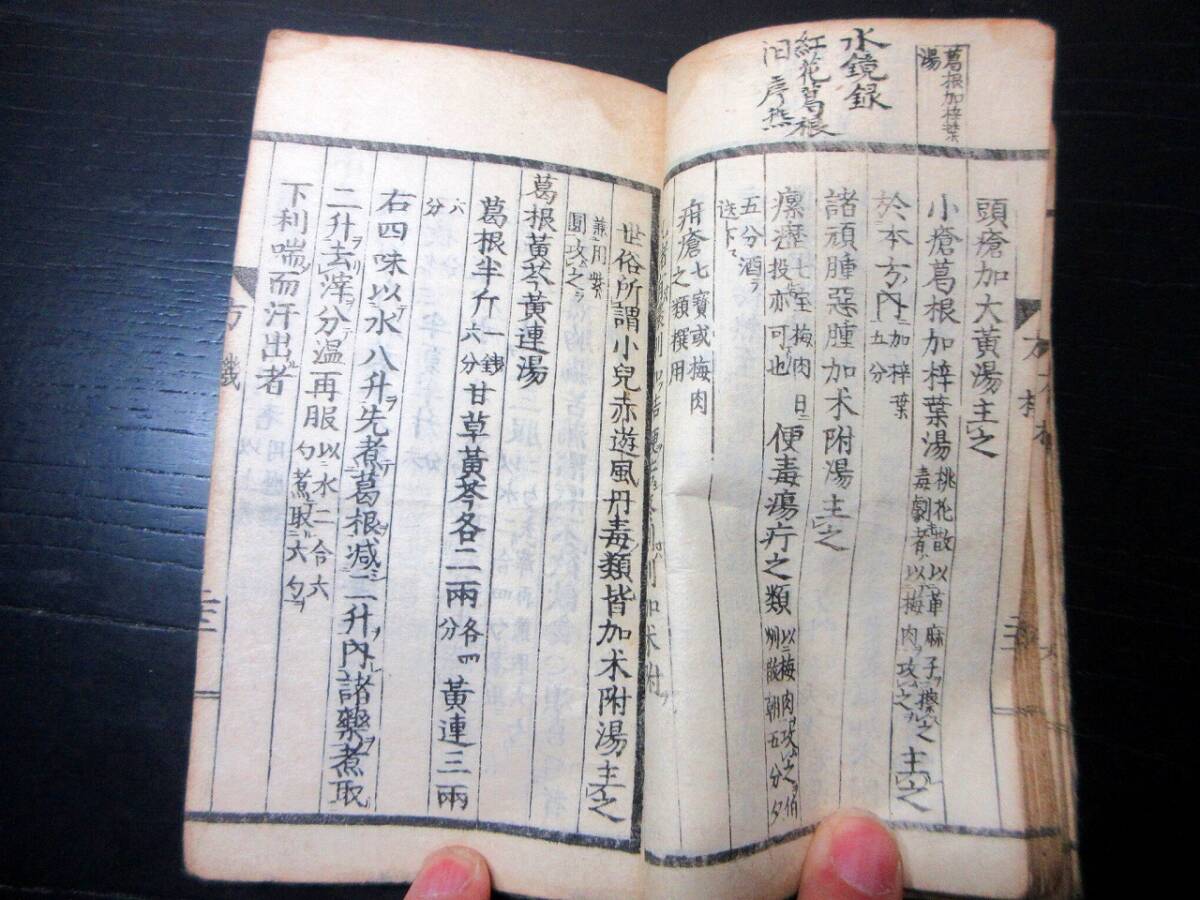 葛根加梓葉
湯
水鏡録
紅花葛根
頭瘡加大黄湯主之
小瘡葛根加梓葉湯桃花散以萆麻子擦之
毒劇者以梅肉攻之主之
於本方内加梓葉
五分
諸頑腫惡腫加朮附湯主之
瘰癧七宝梅肉日
投亦可也 便毒瘍疔之類以梅肉攻之伯
州散朝五分夕
五分酒
送下
疳瘡七寶或梅肉
之類撰用
世俗所謂小兒赤遊風丹毒類皆加朮附湯主之
兼用紫
圓攻之
葛根黄芩黄連湯
葛根半斤一錢
六分甘草黄芩各二兩各四
分黄連三兩
六
分
右四味以水八升先煮葛根减二升内諸藥煮取
二升去滓分温再服以水二合六
勺煮取六勺
下利喘而汗出者
方機